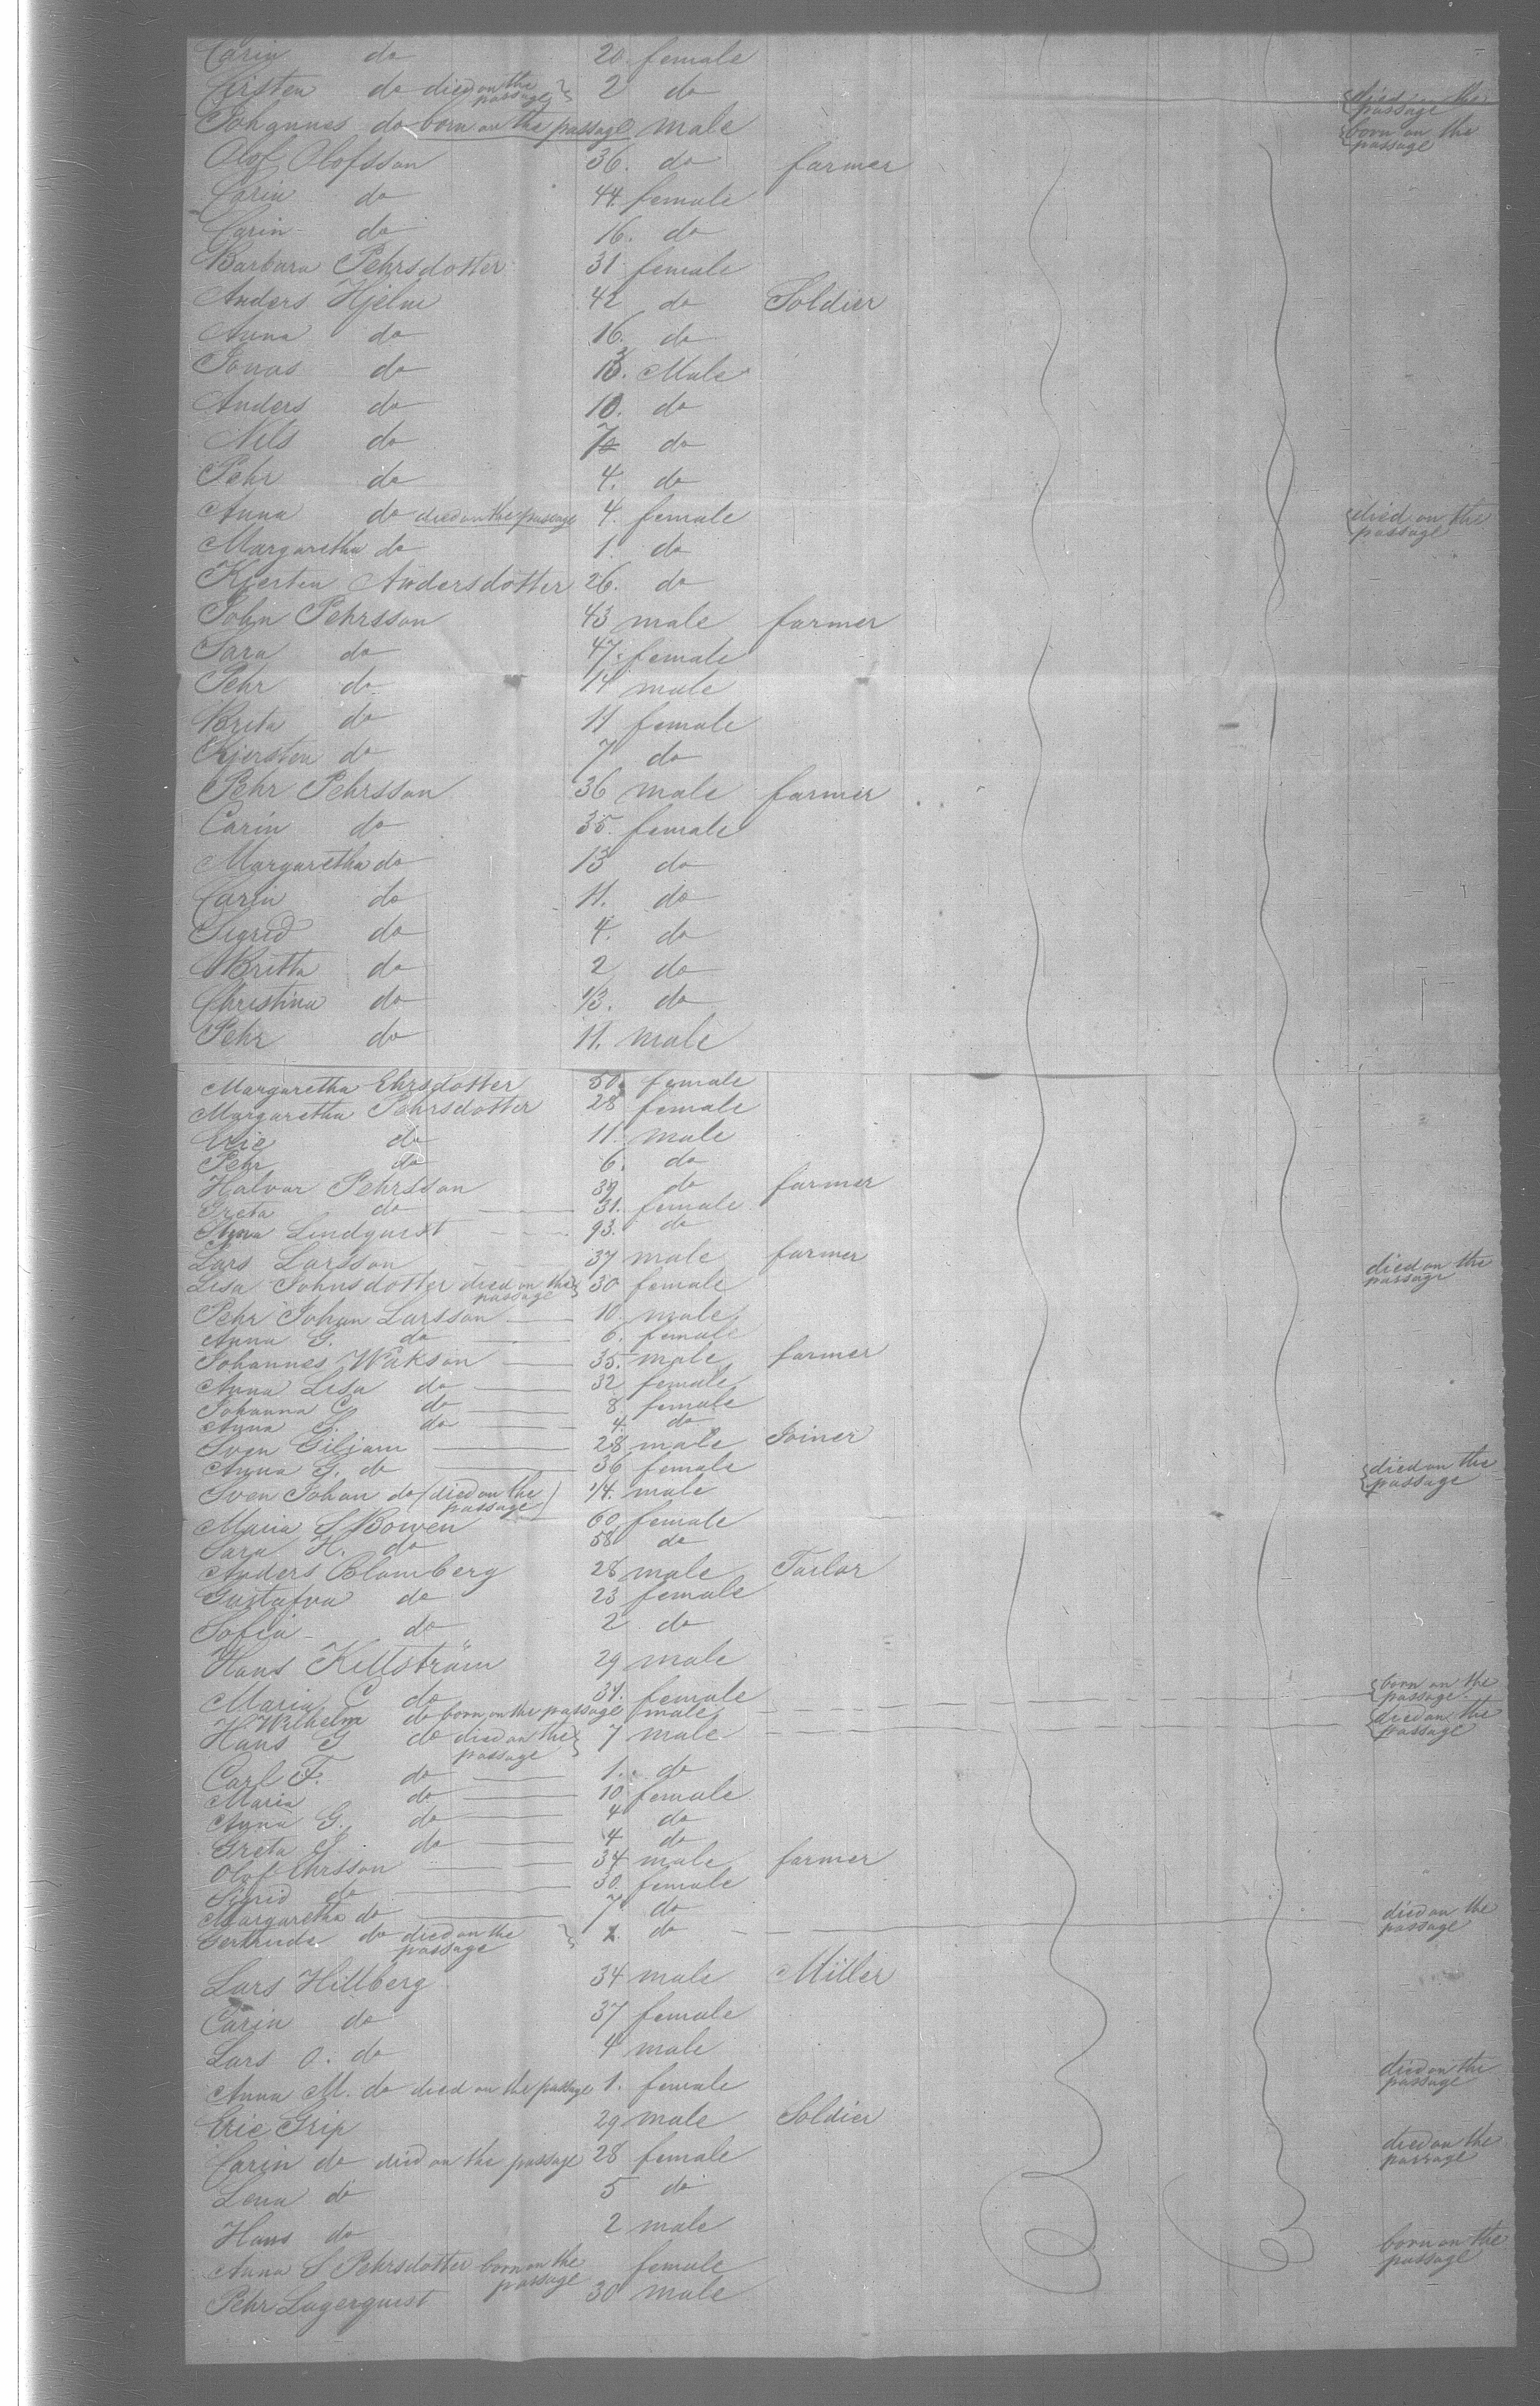 Carin do 20. female
Kirsten do died on the passage 2 do died on the passage
Johannes do born on the passage male born on the passage
Olof Olofsson 36. do farmer
Carin do 44. female
Carin do 16. do
Barbara Pehrsdotter 31 female
Anders Hjelm 42 do Soldier
Anna do 16. do
Jonas do 13. Male
Anders do 10. do
Nils do 7 do
Pehr do 4. do
Anna do died on the passage 4. female died on the passage
Margaretha do 1. do
Kjersten Andersdotter 26. do
John Pehrsson 43 male farmer
Sara do 47. female
Pehr do 14 male
Brita do 11 female
Kjersten do 7 do
Pehr Pehrsson 36 male farmer
Carin do 35. female
Margaretha do 13 do
Carin do 11. do
Sigrid do 4. do
Britta do 2 do
Christina do 1/3. do
Pehr do 11. male
Margaretha Ehrsdotter 50. female
Margaretha Pehrsdotter 28 female
Eric do 11. male
Pehr do 6. do
Halvar Pehrsson 39 do farmer
Greta do 31. female
Lindquist 93. do
Lars Larsson 37 male farmer
Lisa Johnsdotter died on the passage 30 female died on the passage
Pehr Johan Larsson 10. male
Anna G. do 6. female
Johannes Wakson 35. male farmer
Anna Lisa do 32 female
Johanna C do 8 female
Anna S. do 4. do
Sven Giljam 28 male Joiner
Anna G. do 36 female
Sven Johan do (died on the passage) 1/4. male died on the passage
Maria S Bowen 60 female
Sara H. do 58 do
Anders Blomberg 28 male Tailor
Gustafva do 23 female
Sofia do 2 do
Hans Kellström 29 male
Maria C do 31. female
H Wilhelm do born on the passage male born on the passage
Hans G do died on the passage 7 male died on the passage
Carl F. do 1. do
Maria do 10 female
Anna G. do 4 do
Greta S. do 4 do
Olof Ehrsson 34 male farmer
Sigrid do 30. female
Margaretha do 7 do
Gertrude do died on the passage 2. do died on the passage
Lars Hillberg 34 male Miller
Carin do 37 female
Lars O. do 4 male
Anna M. do died on the passage 1. female died on the passage
Eric Grip 29 male Soldier
Carin do died on the passage 28 female died on the passage
Lena do 5 do
Hans do 2 male
Anna S Pehrsdotter born on the passage female born on the passage
Pehr Lagerquist 30 male